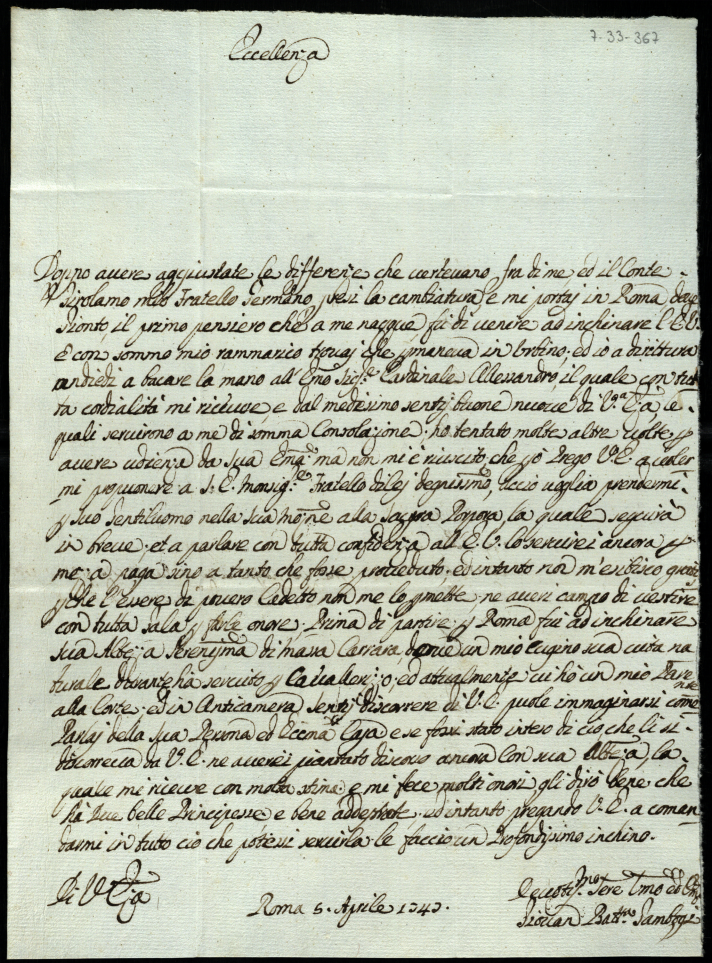 7-33-367
Eccellenza
Doppo avere aggiustate le differenze che vertevano fra di me ed il Conte
Girolamo mio Fratello Germano, presi la cambiatura, e mi portaj in Roma dove
Gionto, il primo pensiero che a me nacque fu di venire ad inchinare l'E.V.
E con sommo mio rammarico trovaj che rimaneva in Urbino: ed io a dirittura
andiedi a baciare la mano all'Emo Sig.r Cardinale Alessandro, il quale con tut
ta cordialità mi riceuve, e dal medesimo sentij buone nuove di V.ra E.a le
quali servirono a me di somma Consolazione: ho tentato molte altre volte p
avere udienza da sua Em.a ma non mi è riuscito che Prego V.E. a voler
mi proponere a S.E. Monsig.re Fratello di lej degnissimo, acciò voglia prendermi
p suo Gentiluomo nella sua alla Sacra Porpora, la quale seguirà
in breve: et a parlare con tutta confidenza all'E.V. lo servirei ancora p
me: a paga sino a tanto che fosse proveduto, ed intanto non m'esibisco gratis
p che l'essere di povero Cadetto non me lo pmette: ne averi campo di vestire
con tutta Gala, p farle onore. Prima di partire p Roma fui ad inchinare
sua Alte:a Serenissma di Massa Carrara, dove un mio Cugino sua vita na
turale durante hà servito p Cavalier:o, ed attualmente vi hò un mio Pare
nte
alla Corte: ed in Anticamera sentij discorrere di V.E. puole immaginarsi come
Parlaj della sua Persona ed Eccma Casa e se fossi stato inteso di ciò che li si
discorreva da V.E. ne averei piantato discorso ancora con sua Alte:a, la
quale mi riceuve con molta stima: e mi fece molti onori gli dirò bene che
hà due belle Principesse e bene addestrate: ed intanto pregando V.E. a coman
darmi in tutto ciò che potessi servirla le faccio un Profondissimo inchino.
Di V.E.za
Roma 5. Aprile 1743.
Devotiss.mo Sere Umo ed
Giovan Batt.a